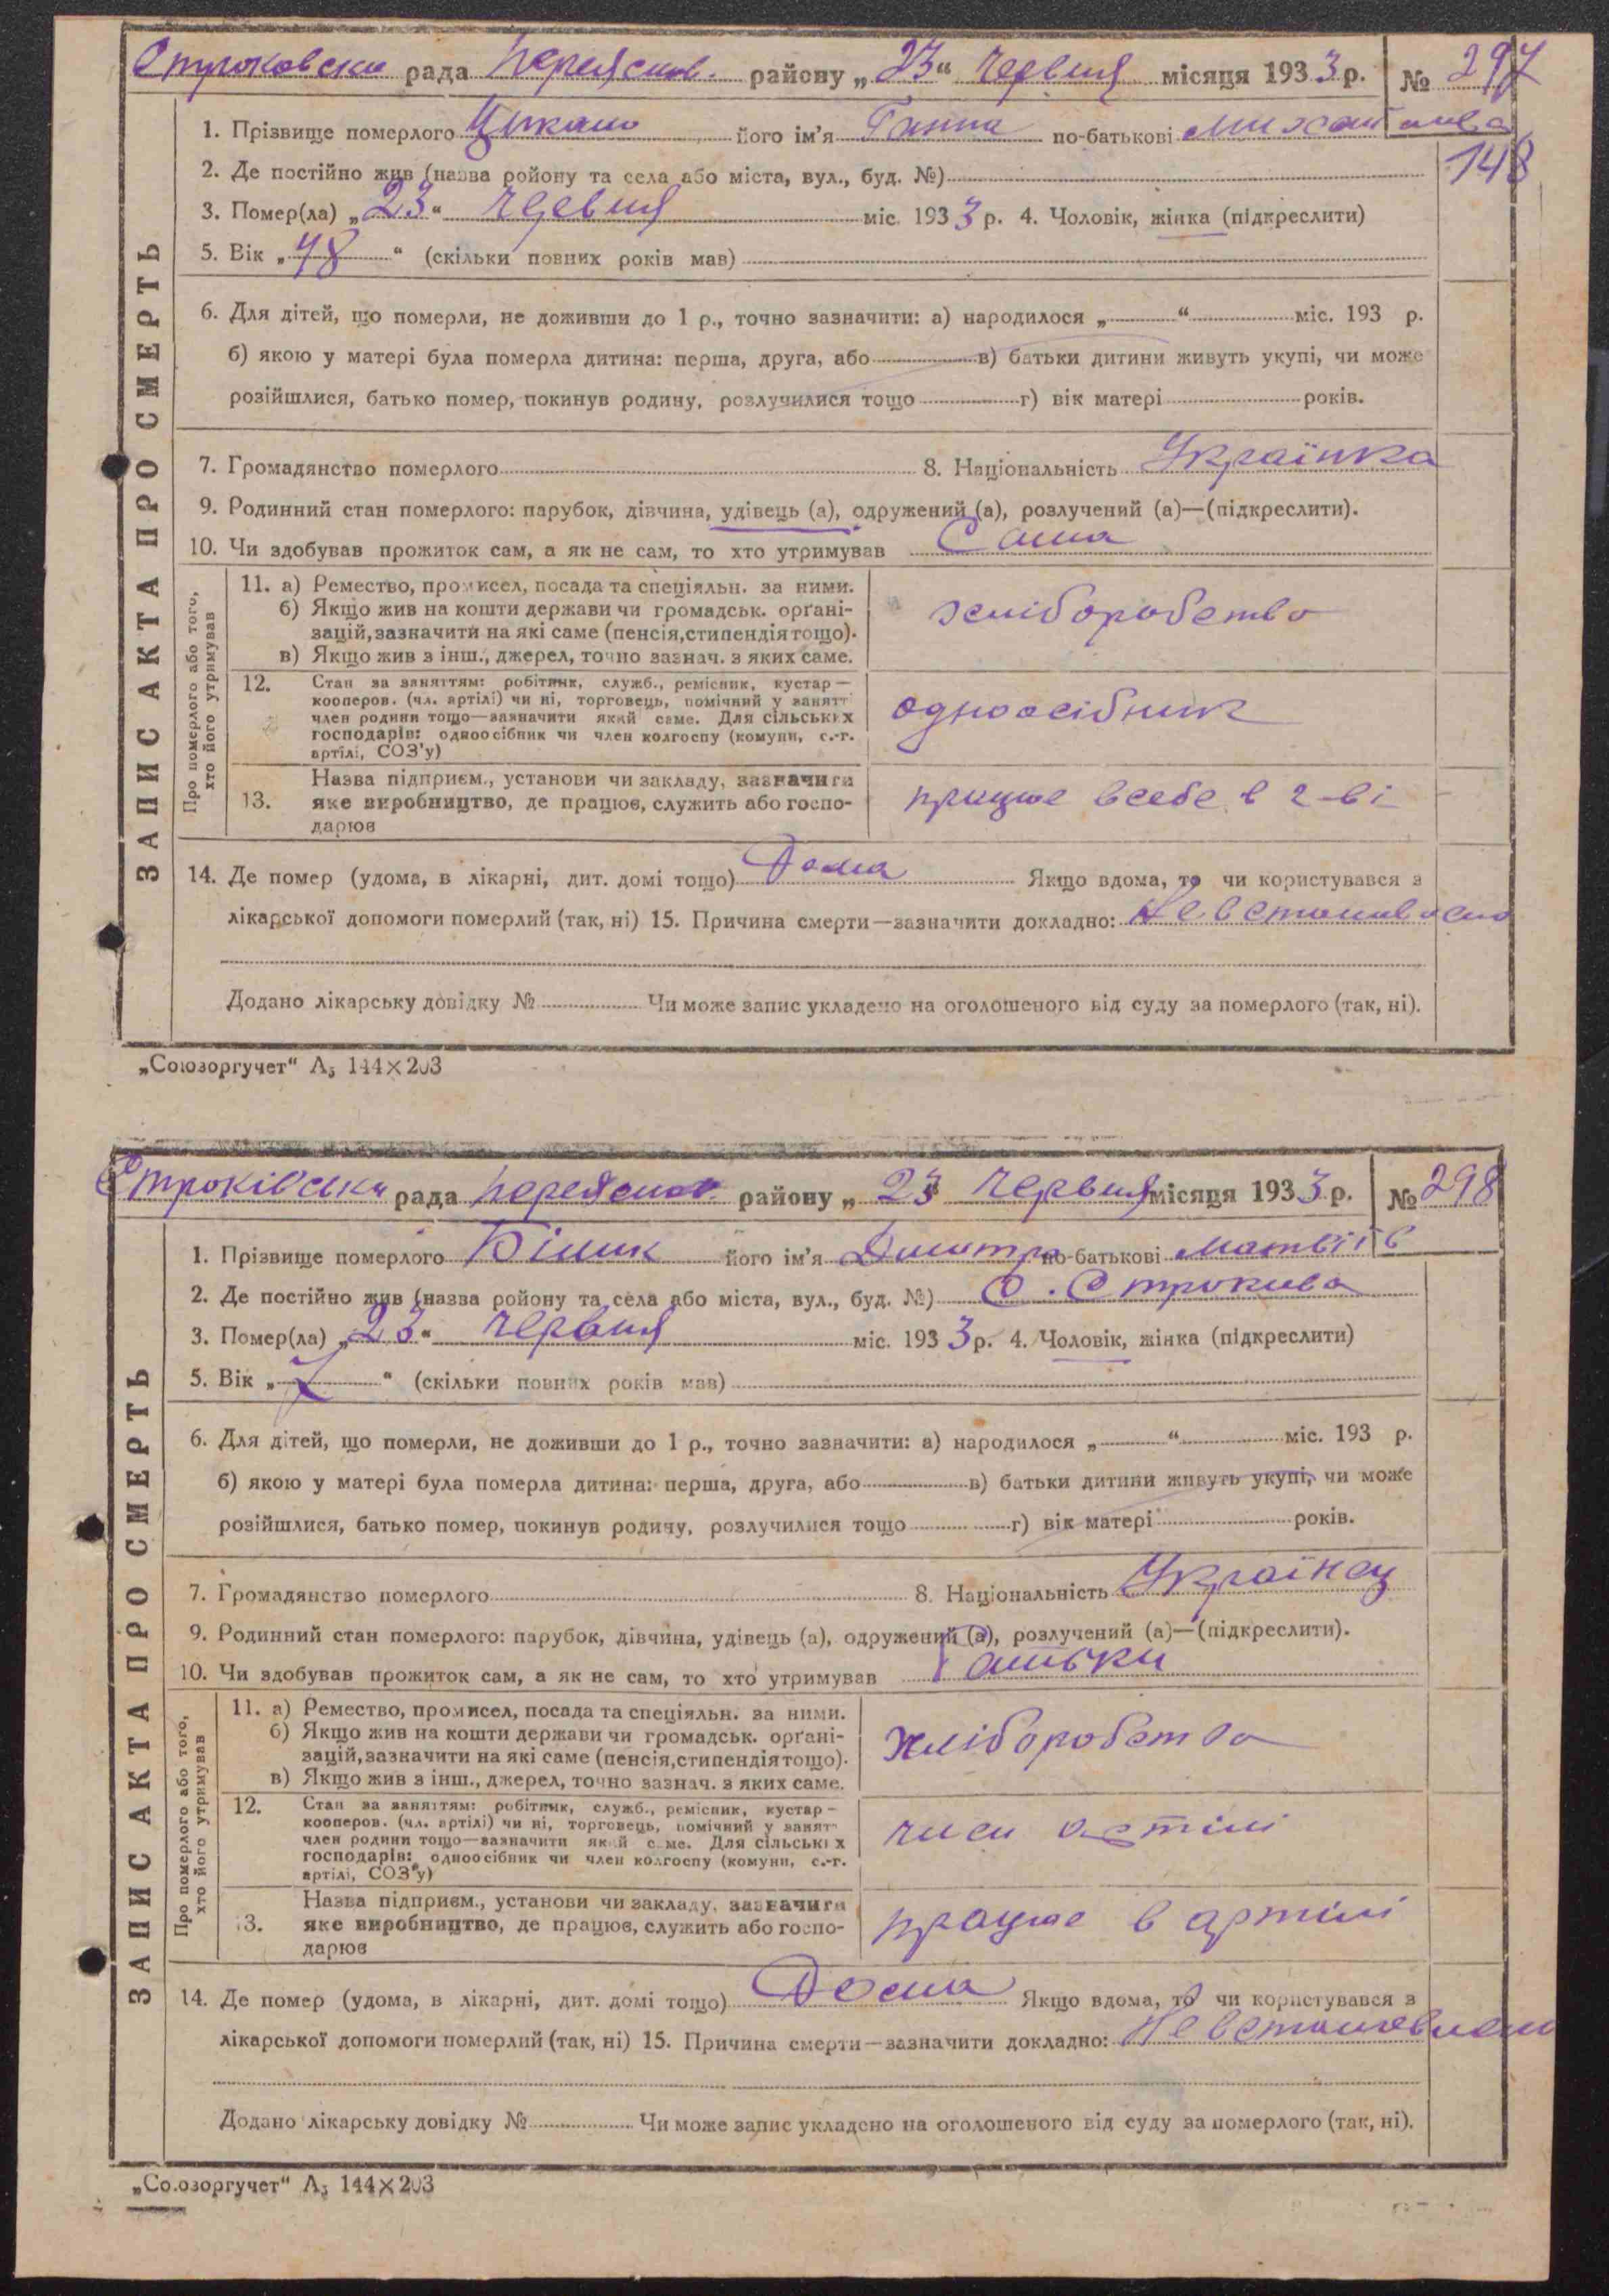 Строковська рада Переяслав. району „23“ Червня місяця 1933 р. № 297
1. Прізвище померлого його ім'я Ганна по-батькові Михайлівна
148
2. Де постійно жив (назва ройону та села або міста, вул., буд. №)
3. Помер(ла) „23“ Червня міс. 1933 р. 4. Чоловік, жінка (підкреслити)
5. Вік „48“ (скільки повних років мав)
6. Для дітей, що померли, не доживши до 1 р., точно зазначити: а) народилося „ “ міс. 193 р.
б) якою у матері була померла дитина: перша, друга, або в) батьки дитини живуть укупі, чи може
розійшлися, батько помер, покинув родину, розлучилися тощо г) вік матері років.
7. Громадянство померлого 8. Національність Українка
9. Родинний стан померлого: парубок, дівчина, удівець (а), одружений (а), розлучений (а)—(підкреслити).
10. Чи здобував прожиток сам, а як не сам, то хто утримував Сама
ЗАПИС АКТА ПРО СМЕРТЬ
Про померлого або того, хто його утримував
11. а) Ремество, промисел, посада та спеціяльн. за ними.
б) Якщо жив на кошти держави чи громадськ. орґані-
зацій, зазначити на які саме (пенсія, стипендія тощо).
в) Якщо жив з інш., джерел, точно зазнач. з яких саме.
хліборобство
12. Стан за заняттям: робітник, служб., ремісник, кустар—
кооперов. (чл. артілі) чи ні, торговець, помічний у занятт
член родини тощо—зазначити який саме. Для сільських
господарів: одноосібник чи член колгоспу (комуни, с.-г.
артілі, СОЗ'у)
одноосібник
13. Назва підприєм., установи чи закладу, зазначити
яке виробництво, де працює, служить або госпо-
дарює
працює в себе в г-ві
14. Де помер (удома, в лікарні, дит. домі тощо) Дома Якщо вдома, то чи користувався з
лікарської допомоги померлий (так, ні) 15. Причина смерти—зазначити докладно: Не встановлено
Додано лікарську довідку № Чи може запис укладено на оголошеного від суду за померлого (так, ні).
„Союзоргучет“ А₅ 144×203
Строківська рада Переяслав. району „23“ Червня місяця 1933 р. № 298
1. Прізвище померлого Білик його ім'я Дмитро по-батькові Матвіїв
2. Де постійно жив (назва ройону та села або міста, вул., буд. №) С. Строкова
3. Помер(ла) „23“ Червня міс. 1933 р. 4. Чоловік, жінка (підкреслити)
5. Вік „7“ (скільки повних років мав)
6. Для дітей, що померли, не доживши до 1 р., точно зазначити: а) народилося „ “ міс. 193 р.
б) якою у матері була померла дитина: перша, друга, або в) батьки дитини живуть укупі, чи може
розійшлися, батько помер, покинув родину, розлучилися тощо г) вік матері років.
7. Громадянство померлого 8. Національність Українец
9. Родинний стан померлого: парубок, дівчина, удівець (а), одружений (а), розлучений (а)—(підкреслити).
10. Чи здобував прожиток сам, а як не сам, то хто утримував
ЗАПИС АКТА ПРО СМЕРТЬ
Про померлого або того, хто його утримував
11. а) Ремество, промисел, посада та спеціяльн. за ними.
б) Якщо жив на кошти держави чи громадськ. орґані-
зацій, зазначити на які саме (пенсія, стипендія тощо).
в) Якщо жив з інш., джерел, точно зазнач. з яких саме.
хліборобство
12. Стан за заняттям: робітник, служб., ремісник, кустар—
кооперов. (чл. артілі) чи ні, торговець, помічний у занят
член родини тощо—зазначити який саме. Для сільських
господарів: одноосібник чи член колгоспу (комуни, с.-г.
артілі, СОЗ'у)
член артілі
13. Назва підприєм., установи чи закладу, зазначити
яке виробництво, де працює, служить або госпо-
дарює
працює в артілі
14. Де помер (удома, в лікарні, дит. домі тощо) Дома Якщо вдома, то чи користувався з
лікарської допомоги померлий (так, ні) 15. Причина смерти—зазначити докладно: Не встановлено
Додано лікарську довідку № Чи може запис укладено на оголошеного від суду за померлого (так, ні).
„Союзоргучет“ А₅ 144×203